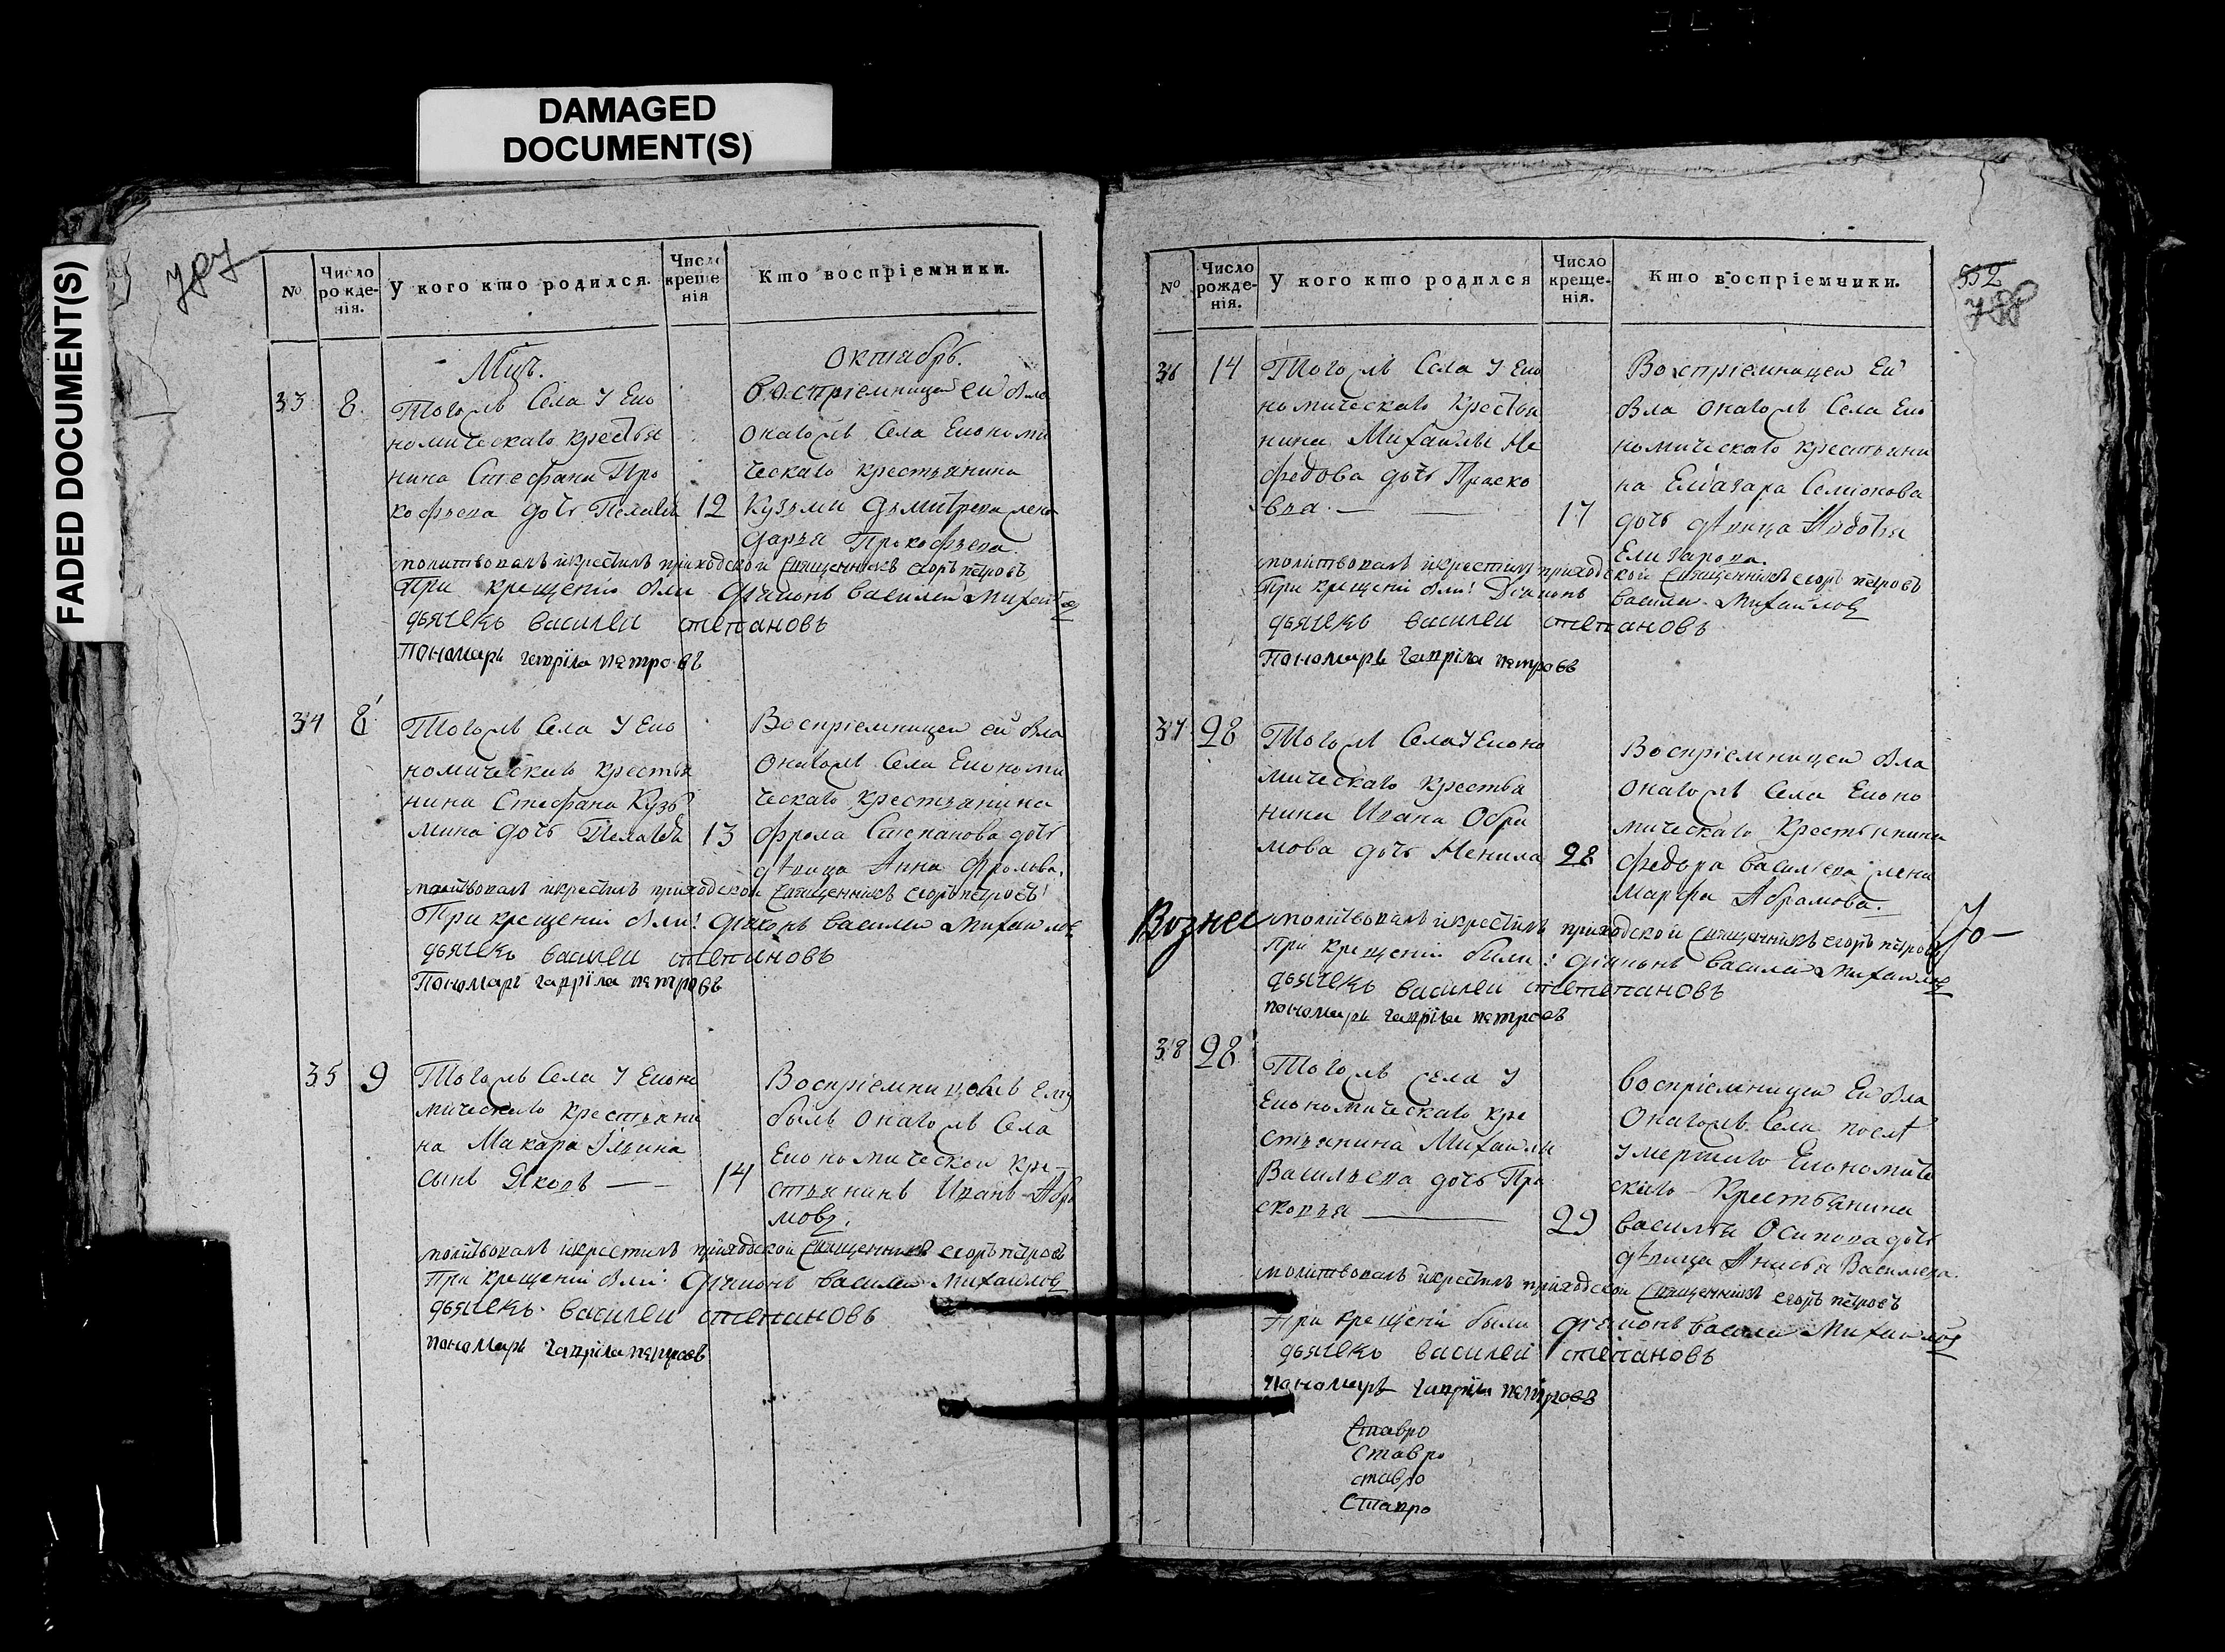 DAMAGED
DOCUMENT(S)
FADED DOCUMENT(S)
№
Число рожденія.
У кого кто родился.
Число крещенія
Кто воспріемники.
Мцъ.
Октябрь.
33
8.
Тогожъ Села У Еко
номическаго крестья
нина Стефана Про
кофьева дочь Пелагѣя
12
воспріемницей ей была
онагожъ Села Економи
ческаго крестьянина
Кузьмы Дьмитрева жена
Дарья Прокофьева.
молитвовалъ и крестилъ приходской священникъ егоръ петровъ
При крещеніи были діаконъ василеи Михайловъ
дьячекъ василеи степановъ
Пономарь гаврїла петровъ
34
8
Тогожъ Села У Еко
номическаго крестья
нина Стефана Кузь
мина дочь Пелагѣя
13
Воспріемницеи ей была
Онагожъ Села Економи
ческаго крестьянина
Фрола Степанова дочь
дѣвица Анна Фролова.
молитвовалъ и крестилъ приходской священникъ егоръ петровъ
При крещеніи были: діаконъ василеи Михайловъ
дьячекъ василеи степановъ
Пономарь гаврїла петровъ
35
9
Тогожъ Села У Еконо
мическаго крестьяни
на Макара Ільина
сынъ Яковъ
14
Воспріемникомъ ему
былъ Онагожъ Села
Економической кре-
стьянинъ Иванъ Абра
мовъ.
молитвовалъ и крестилъ приходской священникъ егоръ петровъ
При крещеніи были: діаконъ василеи Михайловъ
дьячекъ василеи степановъ
пономарь гаврїла петровъ
552
788
№
Число рожденія.
У кого кто родился
Число крещенія.
Кто воспріемники.
36
14
Тогожъ Села У Еко
номическаго крестья
нина Михайлы Не
федова дочь Праско
вья.
17
Воспріемницеи Ей
была онагожъ Села Еко
номическаго крестьяни
на Елиазара Семіонова
дочь дѣвица Авдотья
Елизарова.
молитвовалъ и крестилъ приходской священникъ егоръ петровъ
При крещеніи были! Діаконъ василеи Михайловъ
дьячекъ василеи степановъ
Пономарь гаврїла петровъ
37
28
Тогожъ Села У Еконо
мическаго крестья
нина Ивана Обра
мова дочь Ненила
28
Воспріемницеи была
онагожъ Села Еконо
мическаго крестьянина
Федора Васильева жена
Марфа Абрамова.
Вознес
молитвовалъ и крестилъ приходской священникъ егоръ петровъ
при крещеніи были: діаконъ василеи Михайловъ
дьячекъ василеи степановъ
пономарь гаврїла петровъ
38
28
Тогожъ села У
Економическаго кре
стьянина Михайлы
Васильева дочь Пра
сковья
29
воспріемницеи Ей была
Онагожъ Села послѣ
умершаго Економиче
скаго крестьянина
Василья Осипова дочь
дѣвица Анисья Васильева.
молитвовалъ и крестилъ приходской священникъ егоръ петровъ
При крещеніи были діаконъ василеи Михайловъ
дьячекъ василеи степановъ
пономарь гаврїла петровъ
Ставро
Ставро
ставро
Ставро